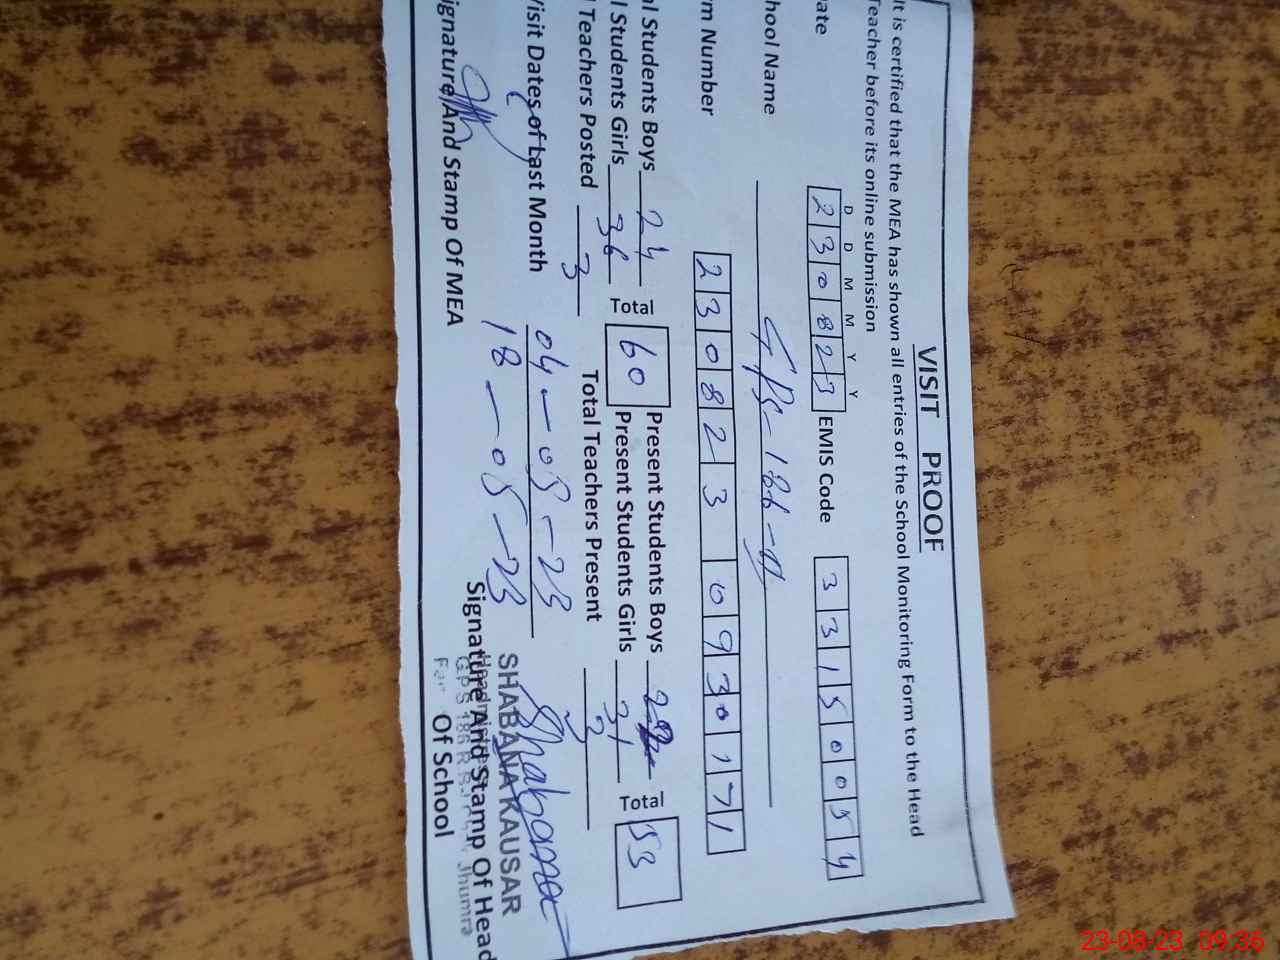 VISIT PROOF
It is certified that the MEA has shown all entries of the School Monitoring Form to the Head
Teacher before its online submission
D D M M Y Y
ate 2 3 0 8 2 3 EMIS Code 3 3 1 5 0 0 5 4
hool Name GPS-186-
rm Number 2 3 0 8 2 3 0 9 3 0 1 7 1
l Students Boys 24 Total 60 Present Students Boys Total 53
l Students Girls 36 Present Students Girls 31
l Teachers Posted 3 Total Teachers Present 3
Visit Dates of Last Month 04-05-23
18-05-23
Shabana
SHABANA KAUSAR
ignature And Stamp Of MEA Signature And Stamp Of Head
GPS 186 R.B Jhumra
Of School
23-08-23 09:36